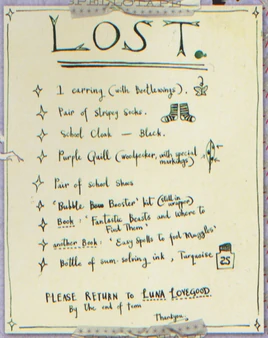 LOST.
1 earring (with Beetlewings).
Pair of Stripey Socks.
School Cloak — Black.
Purple Quill (woodpecker, with special
markings)
Pair of school shoes
'Bubble Boom Booster' kit (still in
wrapper)
Book: 'Fantastic Beasts and where to
Find Them'
another Book: 'Easy Spells to fool Muggles'
Bottle of sum-solving ink, Turquoise
25
PLEASE RETURN TO LUNA LOVEGOOD
By the end of term
Thankyou